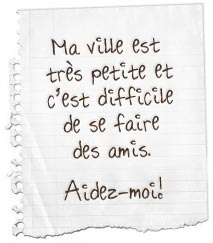 Ma ville est
très petite et
c'est difficile
de se faire
des amis.
Aidez-moi!